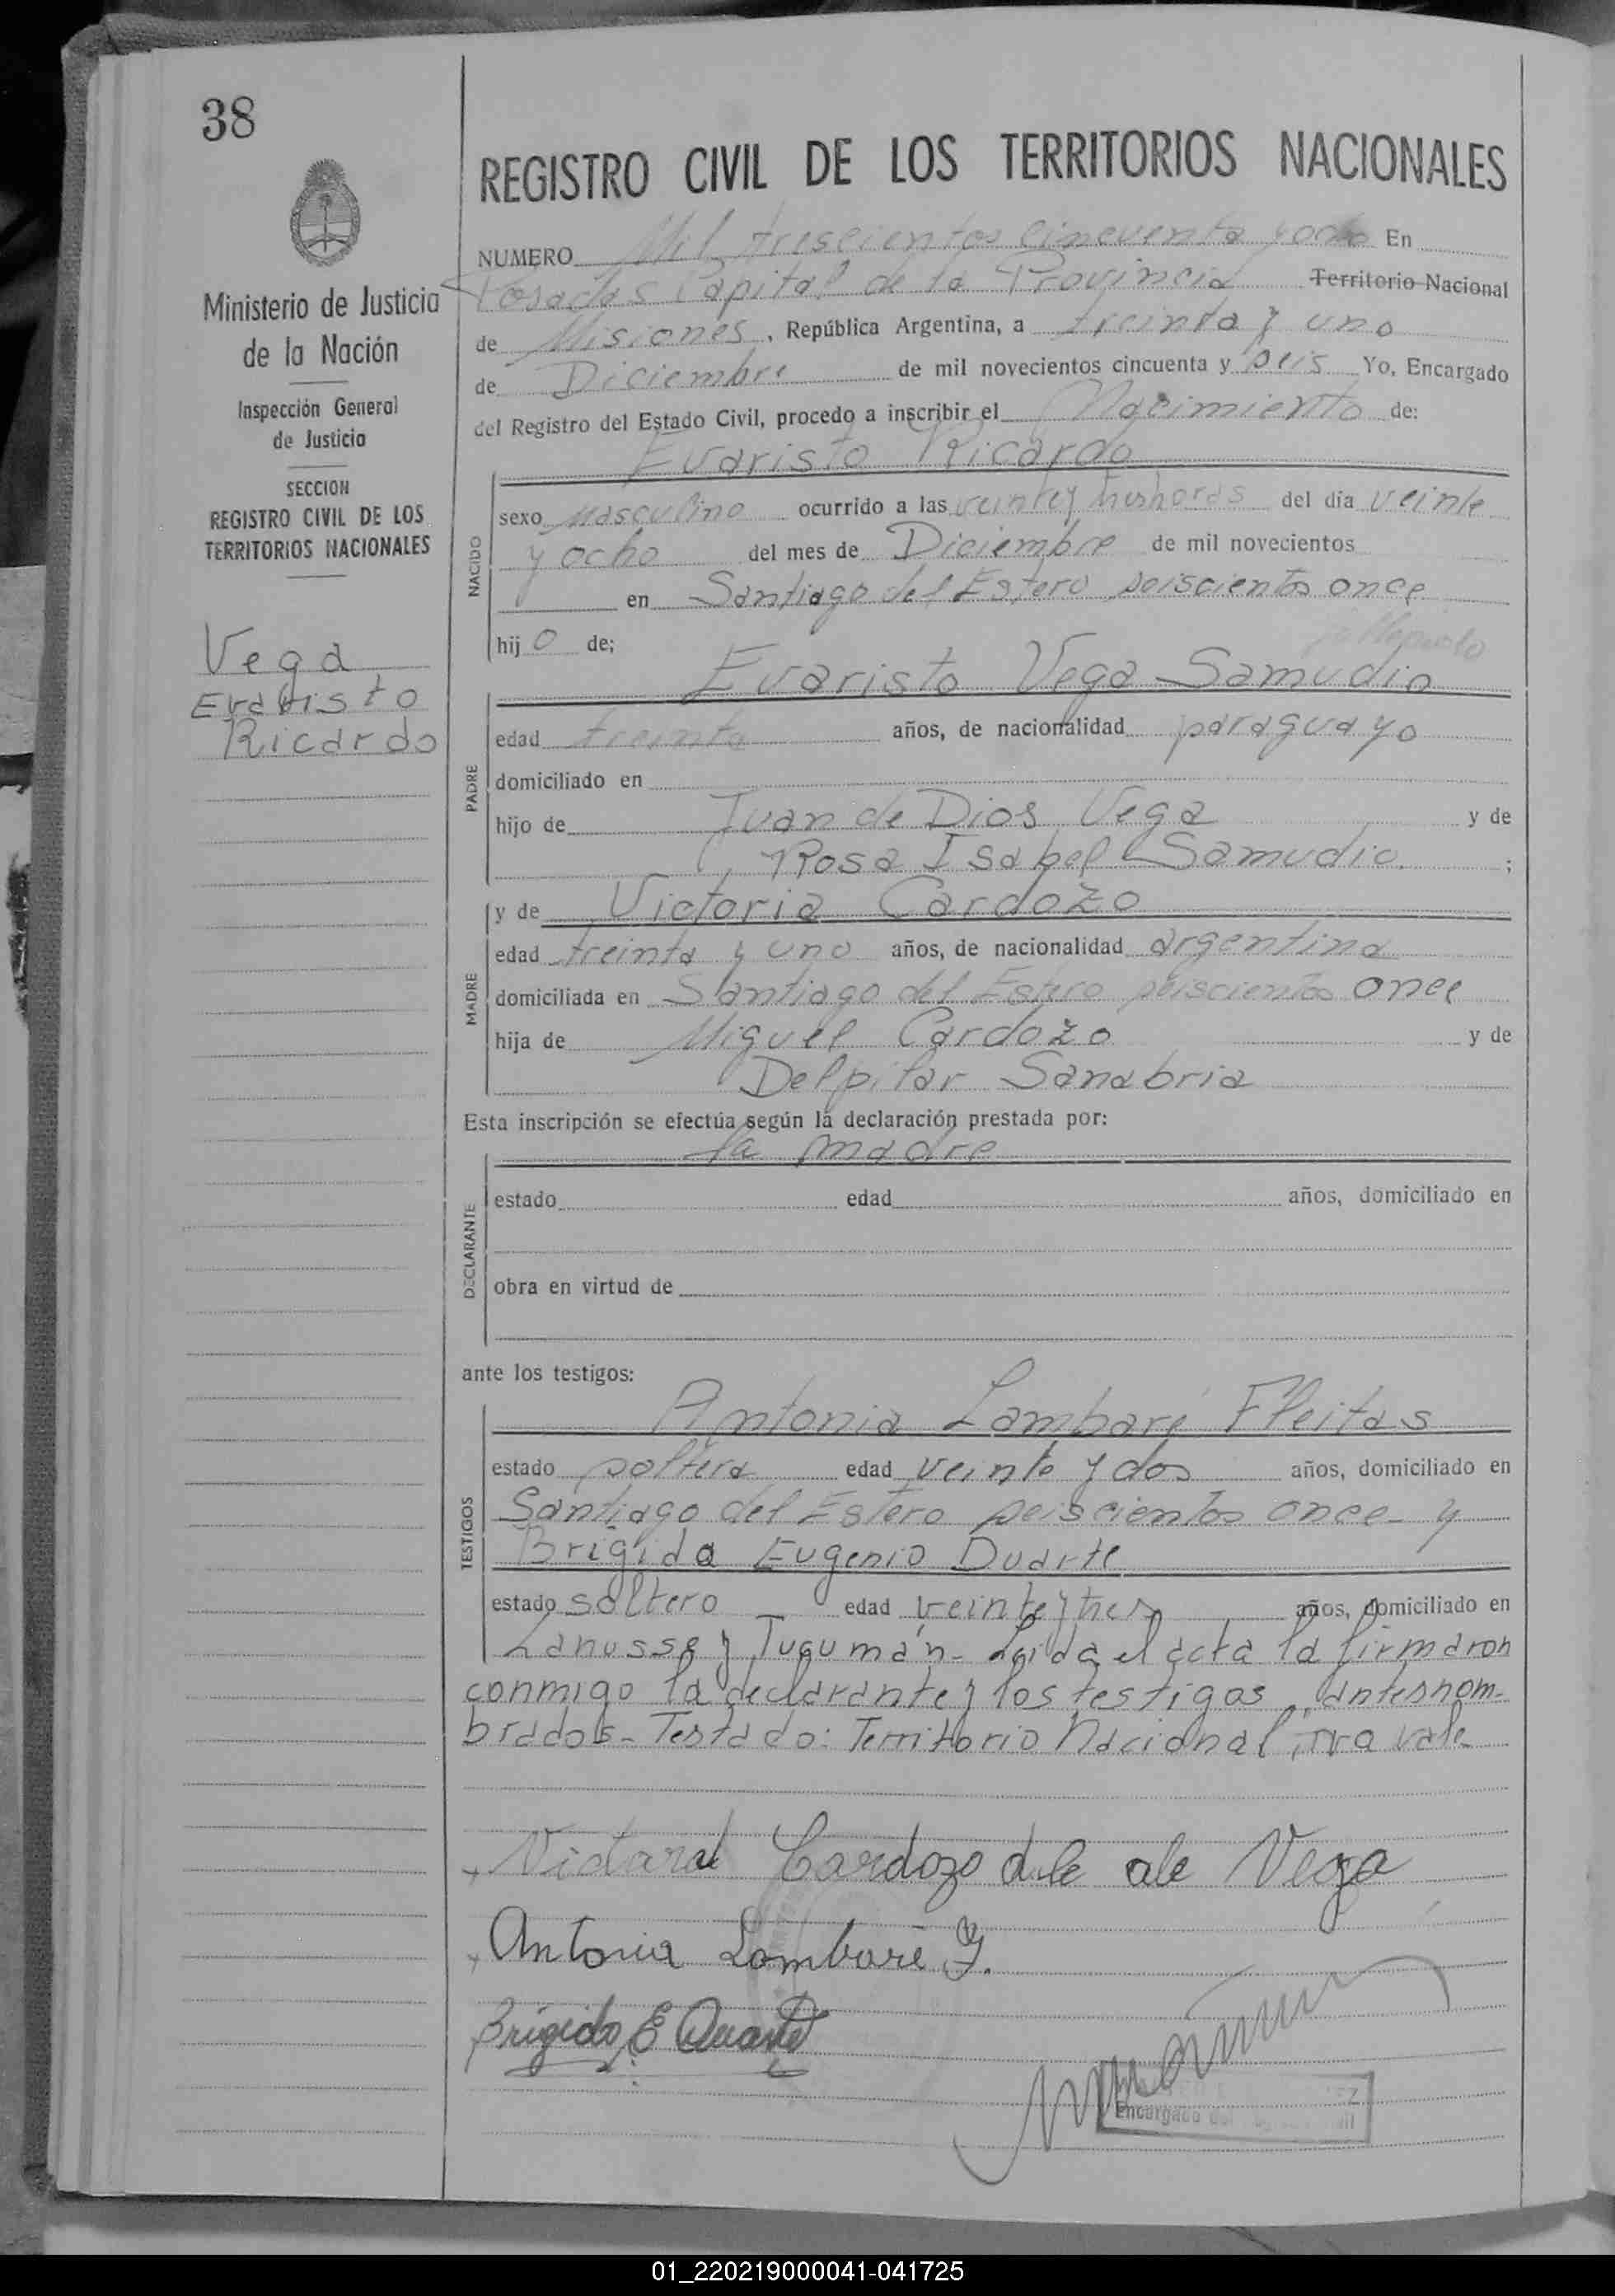 38
REGISTRO CIVIL DE LOS TERRITORIOS NACIONALES
Ministerio de Justicia
de la Nación
Inspección General
de Justicia
SECCION
REGISTRO CIVIL DE LOS
TERRITORIOS NACIONALES
Vega
Evaristo
Ricardo
NUMERO Mil trescientos cincuenta y ocho En
Posadas Capital de la Provincia Territorio Nacional
de Misiones, República Argentina, a treinta y uno
de Diciembre de mil novecientos cincuenta y seis Yo, Encargado
del Registro del Estado Civil, procedo a inscribir el Nacimiento de:
Evaristo Ricardo
NACIDO
sexo Masculino ocurrido a las veinte y tres horas del día veinte
y ocho del mes de Diciembre de mil novecientos
en Santiago del Estero seiscientos once
hijo de;
Evaristo Vega Samudio
PADRE
edad treinta años, de nacionalidad paraguayo
domiciliado en
hijo de Juan de Dios Vega y de
Rosa Isabel Samudio ;
y de Victoria Cardozo
MADRE
edad treinta y uno años, de nacionalidad argentina
domiciliada en Santiago del Estero seiscientos once
hija de Miguel Cardozo y de
Delpilar Sanabria
Esta inscripción se efectúa según la declaración prestada por:
la madre
DECLARANTE
estado edad años, domiciliado en
obra en virtud de
ante los testigos:
Antonia Lambaré Fleitas
TESTIGOS
estado soltera edad veinte y dos años, domiciliado en
Santiago del Estero seiscientos once - y
Brigido Eugenio Duarte
estado soltero edad veinte y tres años, domiciliado en
Lanusse y Tucumán - Leida el acta la firmaron
conmigo la declarante y los testigos, antesnom-
brados - Testado: Territorio Nacional, vale
Cardozo de Vega
Antonia Lambaré F.
Brigido E Duarte
Encargado del
01_220219000041-041725